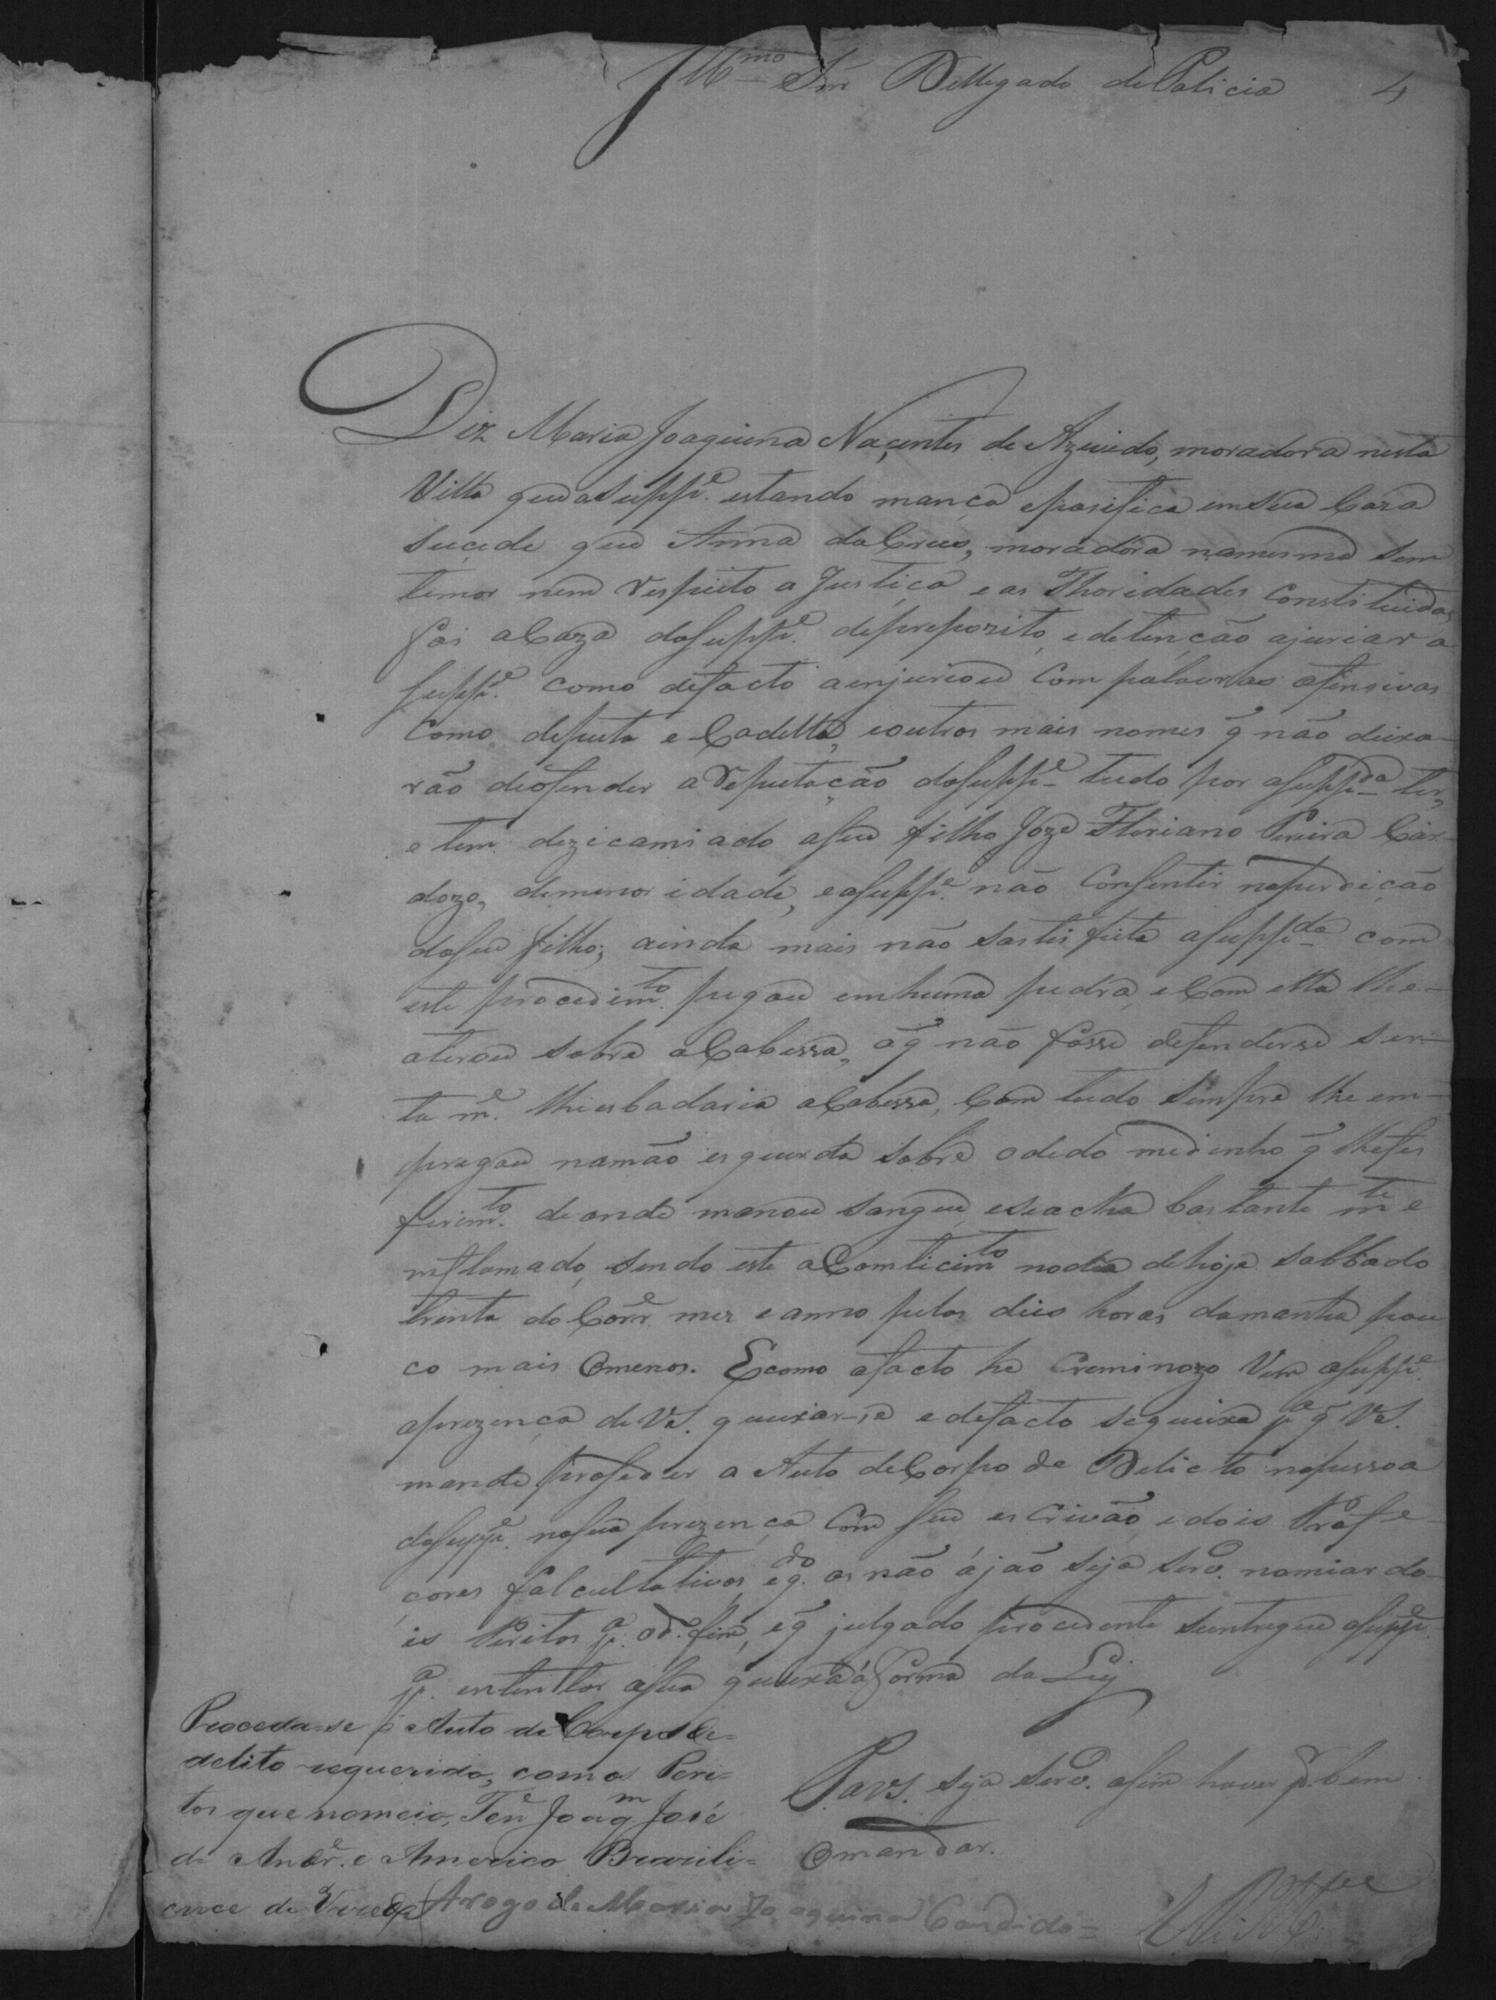 Illmo Snr Dellegado de Policia 4
Diz Maria Joaquina Naçentes de Azevedo, moradora nesta
Villa que a Suppe. estando mança e pasifica em sua Caza
sucede que Anna da Crus, moradora na mesma sem
temor nem respeito a Justiça e as Thoridades Constituidas
foi a Caza da Suppe. de preposito, e detenção ajuriar a
Suppe. como de facto a enjuriou com palavras ofensivas
Como de puta e Cadella, e outros mais nomes q̃ não deixa-
rão de ofender a reputação da Suppe. tudo por a Suppda ter,
e tem dezicamiado a seu filho Joze Floriano Pereira Car-
dozo, de menor idade, e a Suppe. não Consentir na perdição
do seu filho; ainda mais não sastisfeita a Suppda com
este procedimto. pegou em huma pedra, e Com ella lhe-
aterou sobre a Cabessa, a q̃ não fosse defenderse serta-
ta me. lhe esbadaria a Cabessa, Com tudo sempre lhe em-
pregou na mão esquerda sobre o dedo medinho q̃ lhe fes
ferimto. de onde manou sangue, e se acha bastante mte e
inflamado, sendo este aConticimto no dia de hoje sabbado
trinta do Corre. mes e anno pelas dies horas da manha pou
co mais Omenos. E como a facto he Creminozo Vem a Suppe.
a prezença de VS. queixar-se e de facto se queixa pa q̃ VS.
mande proseder a Auto de Corpo de Delicto na pessoa
da Suppe. na sua prezença Com seu escrivão, e dois Profe-
çores falcultativos, e qdo. os não ájão seja servo. nomiar do-
is Peritos pa. o d. fim, e q̃ julgado procedente se entregue a Suppe.
pa. ententar a sua queixa á forma da Ley
P. a VS. seja servo. asim haver pr. bem
Omandar.
Proceda-se o Auto de Corpo de
delito requerido, com os Peri-
tos que nomeio, Tene Joaqm José
de Andre. e Americo Brazili-
ence de
Arogo de Maria Joaquina Candido